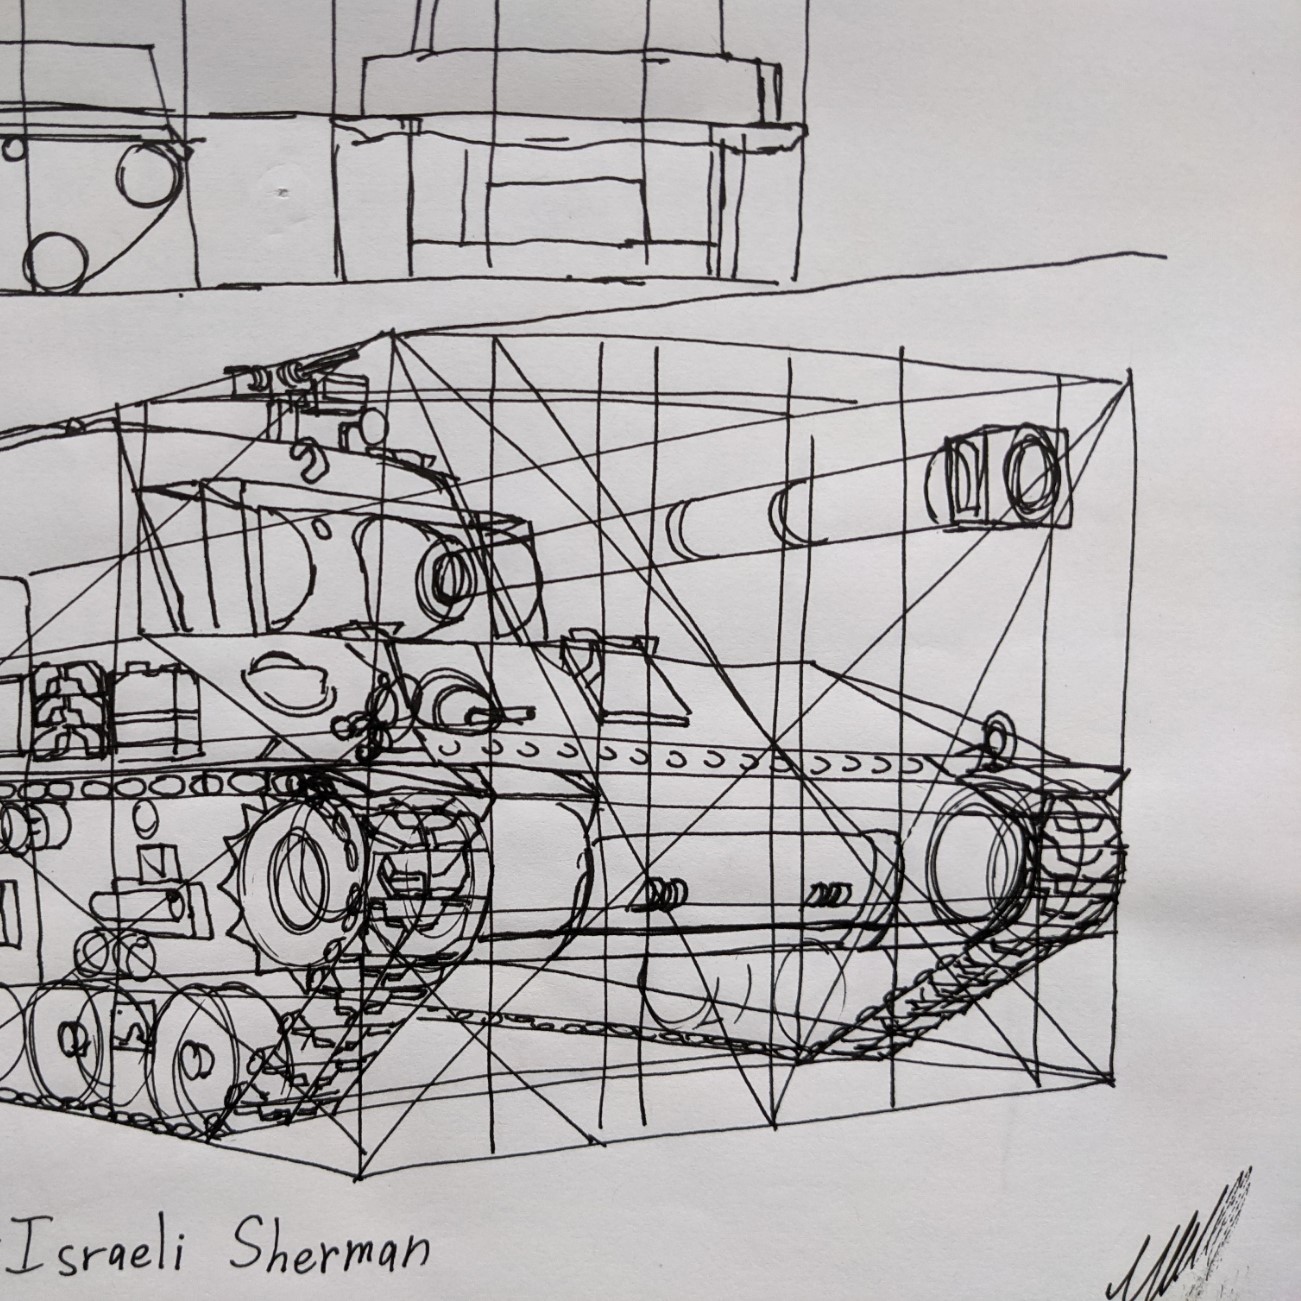 Israeli Sherman